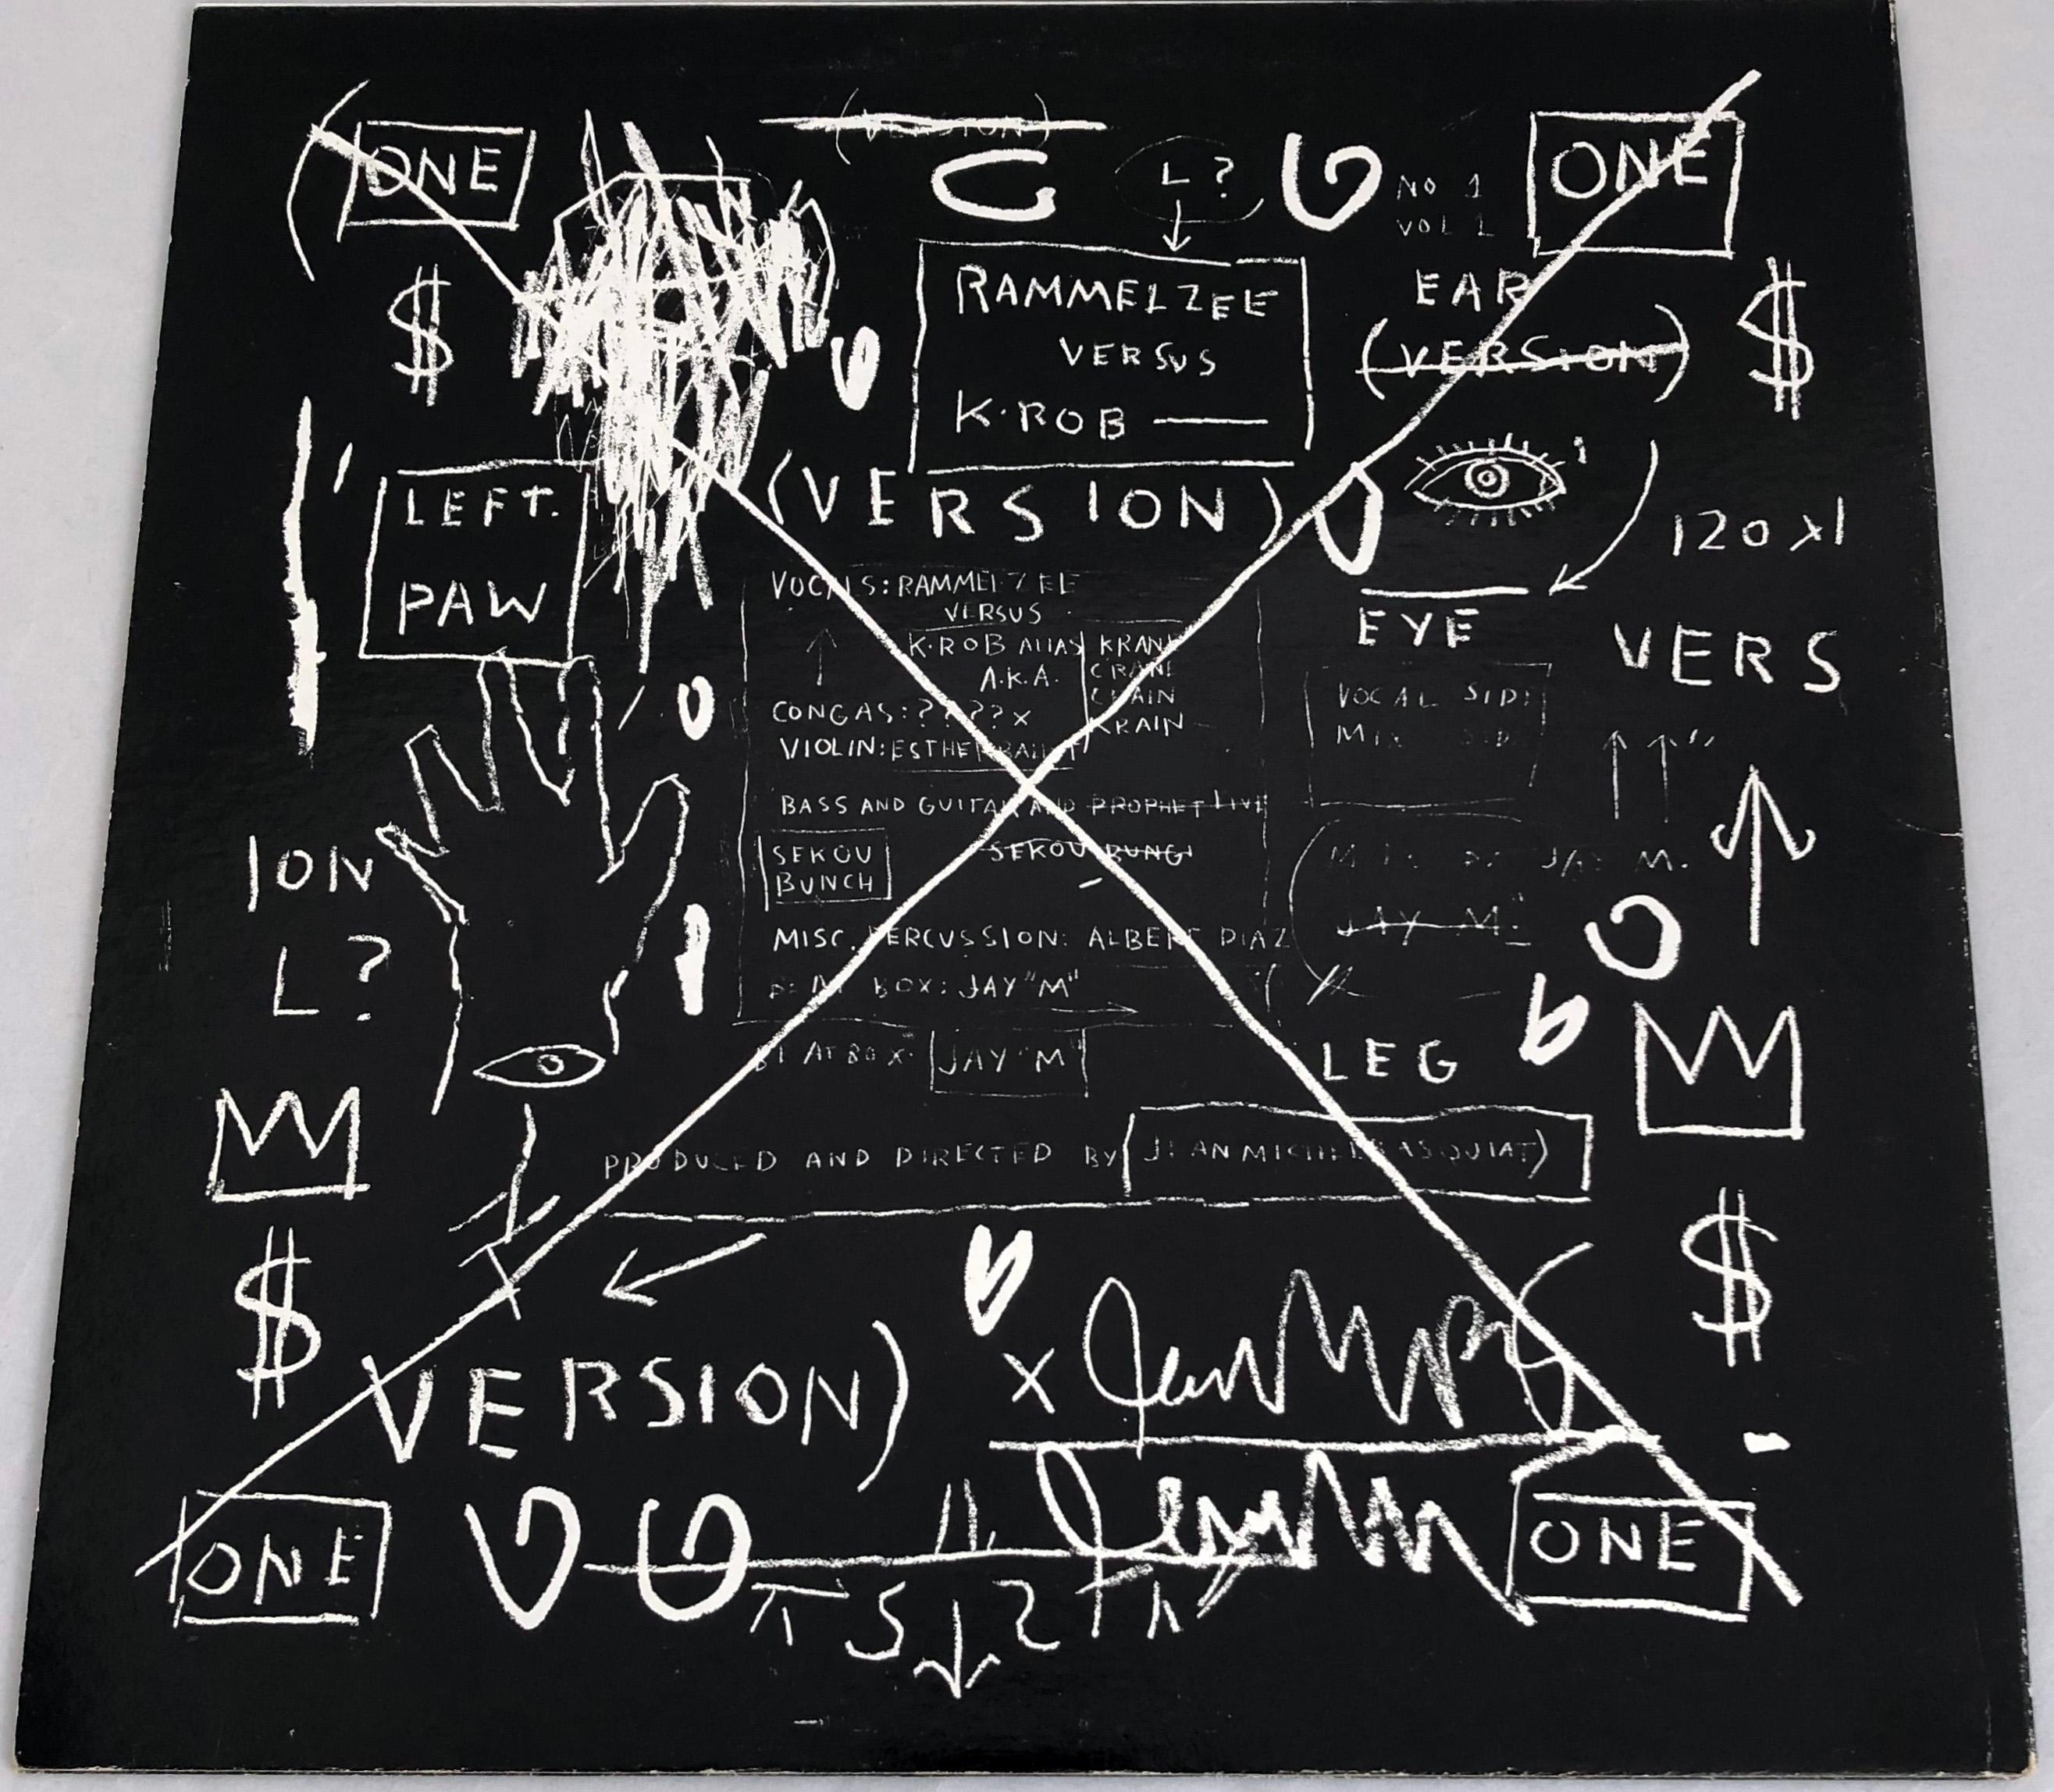 (ONE
(VERSION)
L?
NO 1
VOL 1
ONE
$
RAMMELZEE
VERSUS
K·ROB
EAR
(VERSION)
$
LEFT.
PAW
(VERSION)
EYE
120 X1
VERS
VOCALS: RAMMELZEE
VERSUS
K·ROB ALIAS
A.K.A.
KRANE
CRANE
CHAIN
KRAIN
CONGAS: ????X
VIOLIN: ESTHER
BASS AND GUITAR AND PROPHET LIVE
SEKOU
BUNCH
SEKOU BUNGI
MISC. PERCUSSION: ALBERT DIAZ
BEAT BOX: JAY "M"
BEAT BOX: JAY "M"
VOCAL SIDE
MIX SIDE
MIX BY JAY M.
JAY M.
ION
L?
LEG
PRODUCED AND DIRECTED BY (JEAN MICHEL BASQUIAT)
$
$
VERSION)
X
ONE
ONE